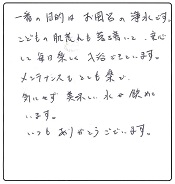 一番の目的は お風呂の浄水です。
こどもの肌荒れも落着いて、安心
して毎日楽しく入浴できています。
メンテナンスもとても楽で、
気にせず 美味しい水が飲めて
います。
いつもありがとうございます。